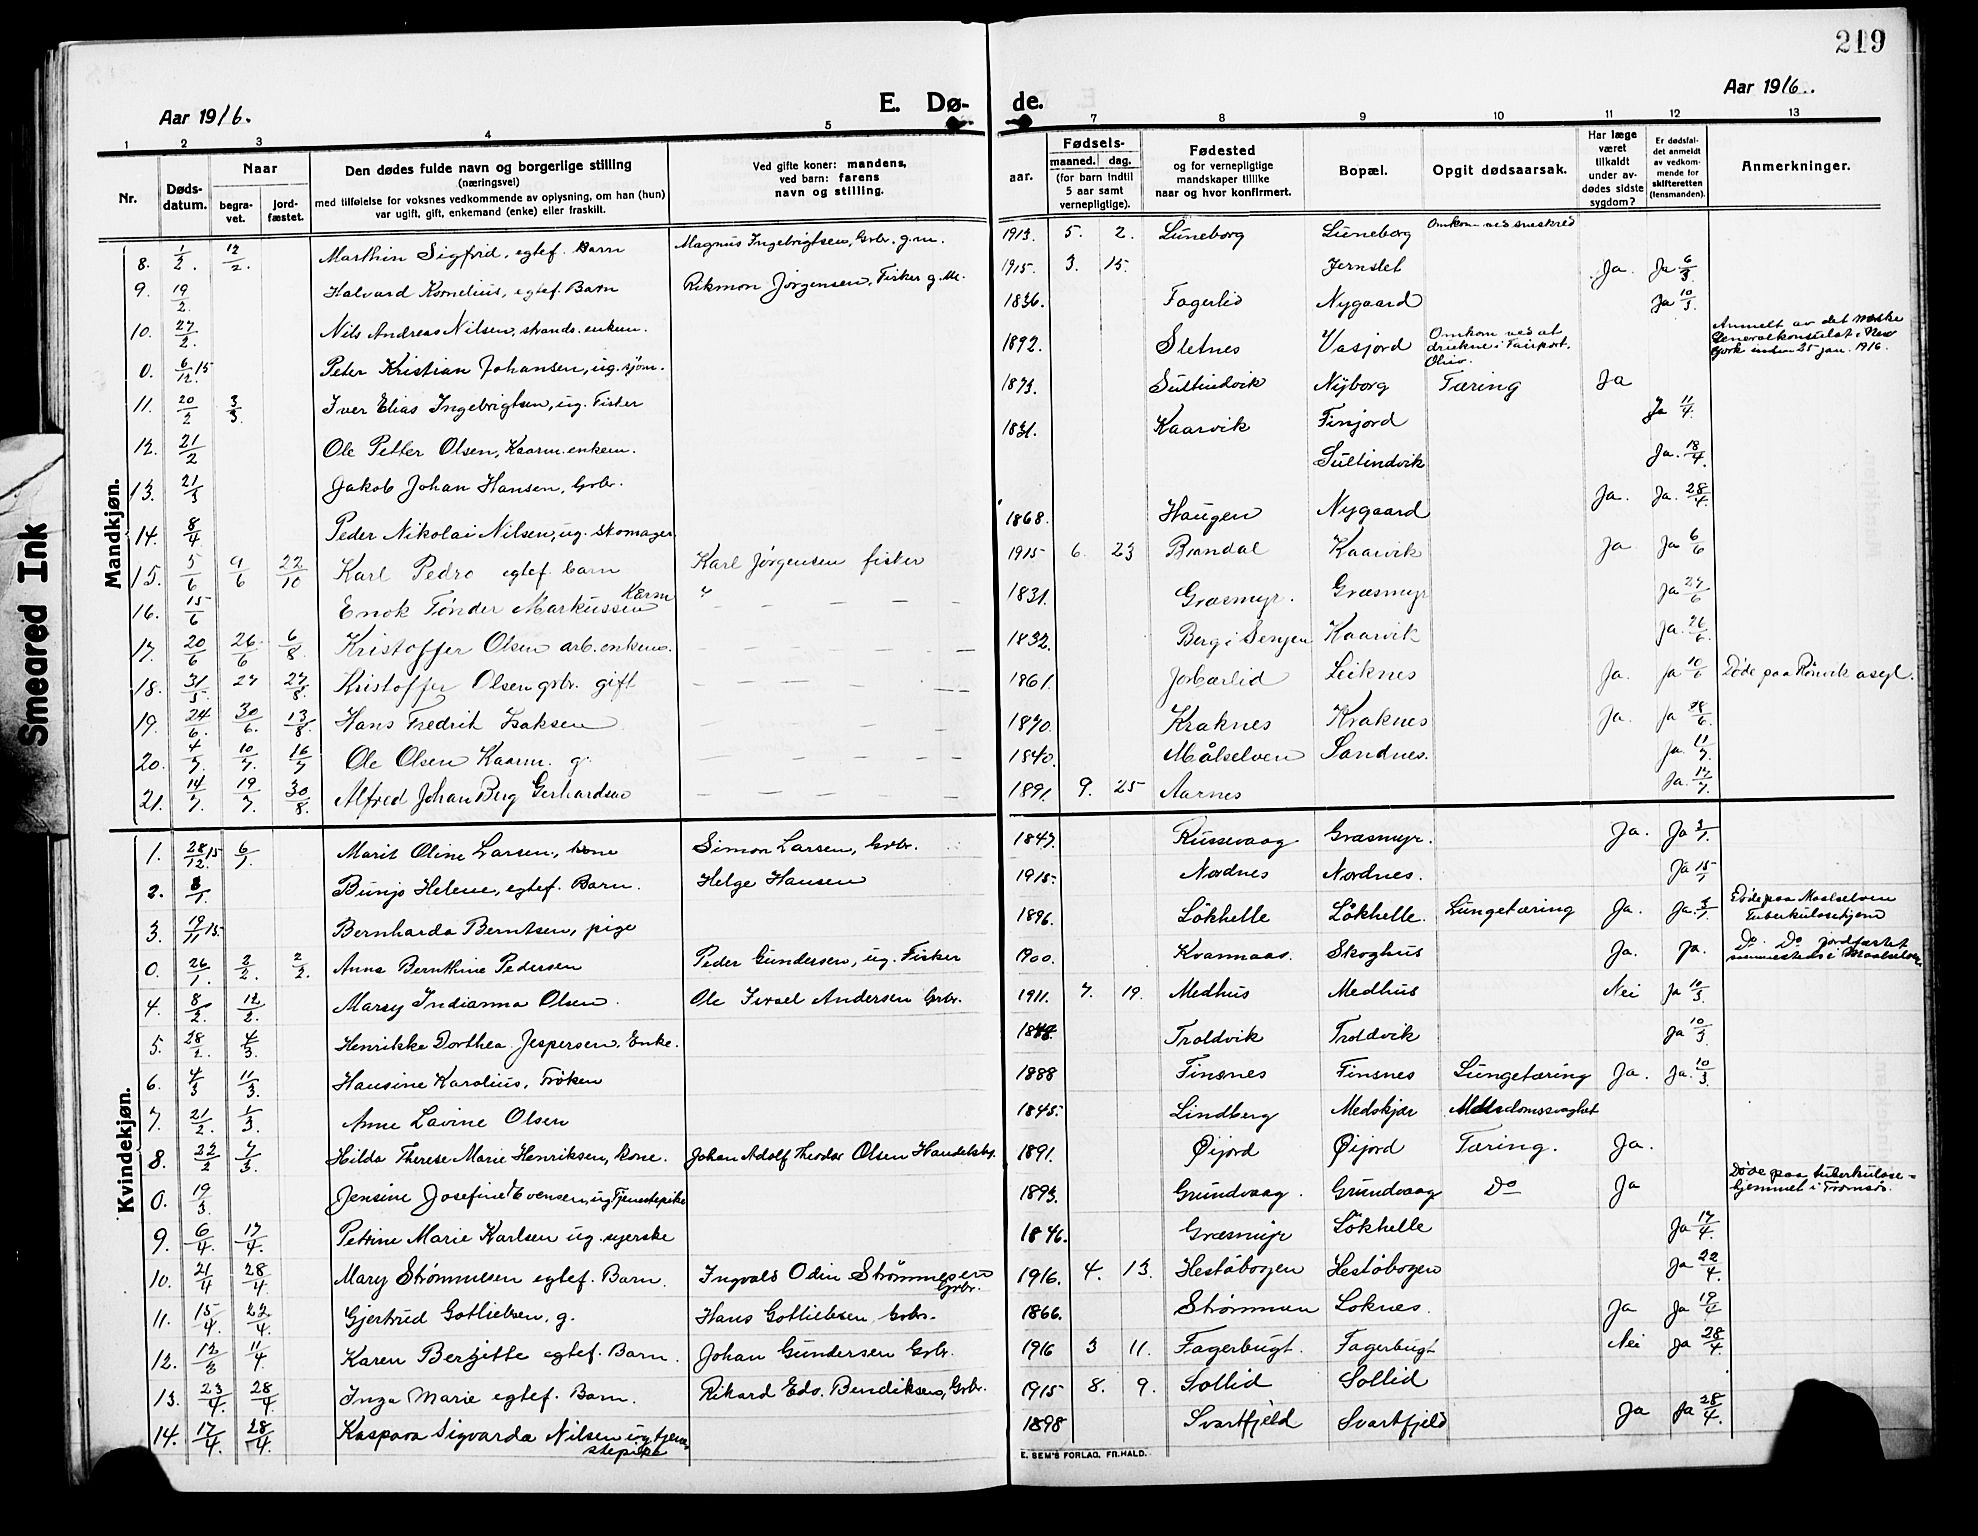 219
Aar 1916.
E. Dø-
de.
Aar 1916.
1 2 3 4 5 7 8 9 10 11 12 13
Nr.
Døds-
datum.
Naar
begra-
vet.
jord-
fæstet.
Den dødes fulde navn og borgerlige stilling
(næringsvei)
med tilføielse for voksnes vedkommende av oplysning, om han (hun)
var ugift, gift, enkemand (enke) eller fraskilt.
Ved gifte koner: mandens,
ved barn: farens
navn og stilling.
Fødsels-
aar.
maaned.
dag.
(for barn indtil
5 aar samt
vernepligtige).
Fødested
og for vernepligtige
mandskaper tillike
naar og hvor konfirmert.
Bopæl.
Opgit dødsaarsak.
Har læge
været
tilkaldt
under av-
dødes sidste
sygdom?
Er dødsfal-
det anmeldt
av vedkom-
mende for
skifteretten
(lensmanden).
Anmerkninger.
Smeared Ink
Mandkjøn.
8. 1/2. 12/2. Marthin Sigfrid, egtef. Barn Magnus Ingebrigtsen, Grbr. g.m. 1913. 5. 2. Luneborg Luneborg Omkom ved sneskred
9. 19/2 Halvard Kornelius, egtef. Barn Rikmon Jørgensen, Fisker g. M. 1915. 3. 15. Jernslet Ja. Ja 6/3
10. 27/2. Nils Andreas Nilsen, strands. enkem. 1836. Fagerlid Nygaard Ja 10/3
0. 6/12. 15 Peter Kristian Johansen, ug. sjøm. 1892. Sletnes Vasjord Omkom ved at drukne i Fairport, Ohio. Anmelt av det norske Generalkonsulat i New York inden 25 jan. 1916.
11. 20/2 3/3 Iver Elias Ingebrigtsen, ug. Fisker 1873. Sultindvik Nyborg Tæring Ja
12. 21/2 Ole Petter Olsen, Kaarm. enkem. 1831. Kaarvik Finjord Ja 11/4.
13. 21/3 Jakob Johan Hansen, Grbr. Sultindvik Ja. 18/4.
14. 8/4 Peder Nikolai Nilsen, ug. skomager 1868. Haugen Nygaard Ja. Ja. 28/4
15. 5/6 9/6 22/10 Karl Pedro egtef. barn Karl Jørgensen fisker 1915 6. 23 Brandal Kaarvik Ja Ja 6/6
16. 15/6 Enok Tønder Markussen Kårm " 1831. Græsmyr. Græsmyr Ja 27/6
17. 20/6 26/6 6/8 Kristoffer Olsen arb. enkem. 1832. Berg i Senjen Kaarvik Ja. 26/6.
18. 31/5 27 27/8. Kristoffer Olsen grbr. gift 1861. Jorbærlid Leiknes Ja. Ja 10/6 Døde paa Rønvik asyl.
19. 24/6. 30/6. 13/8 Hans Fredrik Isaksen 1870. Kraknes Kraknes Ja. Ja 28/6.
20. 4/7. 10/7. 16/7 Ole Olsen Kaarm. g. 1840. Målselven Sandnes. Ja. 11/7
21. 14/7. 19/7. 30/8. Alfred Johan Berg Gerhardsen 1891. 9. 25 Aarnes Ja. 17/7.
Kvindekjøn.
1. 28/12. 15 6/1. Marit Oline Larsen, kone Simon Larsen, Grbr. 1847. Russevaag Græsmyr. Ja. Ja 3/1.
2. 8/1 Bunjo Helene, egtef. Barn. Helge Hansen 1915. Nordnes Nordnes. Ja 15/1
3. 19/11 15. Bernharda Berntsen, pige 1896. Løkhelle Løkhelle. Lungetæring Ja. Ja. 3/1. Døde paa Maalselven Tuberkulosehjem
0. 26/1. 2/2. 2/2. Anna Bernthine Pedersen Peder Gundersen, ug. Fisker 1900. Kvannaas. Skoghus Ja. Ja. Do. Do jordfæstet sammesteds i Maalselven
4. 8/2. 12/2. Marsy Indianna Olsen. Ole Israel Andersen Grbr. 1911. 7. 19. Medhus Medhus Nei Ja 10/3.
5. 28/2. 4/3. Henrikke Dorthea Jespersen, Enke. 1848. Troldvik Troldvik Ja 10/3
6. 4/3 11/3. Hansine Karolius, Frøken 1888 Finsnes Finsnes Lungetæring Ja. Ja. 10/3.
7. 21/2. 1/3. Anne Lavine Olsen 1845. Lindberg Medskjær Alderdomssvaghet
8. 22/2 7/3. Hilda Therese Marie Henriksen, kone. Johan Adolf Theodor Olsen Handelsbj. 1891. Øijord Øijord Tæring. Ja.
0. 19/3. Jensine Josefine Evensen, ug Tjenestepike 1893. Grundvaag. Grundvaag Do Ja Døde paa tuberkulose- hjemmet i Tromsø.
9. 6/4. 17/4. Petrine Marie Karlsen ug. syerske 1846. Græsmyr Løkhelle Ja 17/4.
10. 21/4 28/4. Mary Strømmesen egtef. Barn. Ingvald Odin Strømmesen Grbr. 1916. 4. 13. Hestøbogen Hestøbogen Ja 22/4.
11. 15/4. 22/4. Gjertrud Gotliebsen, g. Hans Gotliebsen, Grbr. 1866. Strømmen Loknes. Ja Ja 19/4
12. 12/3 11/4. Karen Bergitte egtef. Barn. Johan Gundersen Grbr. 1916 3 11. Fagerbugt. Fagerbugt Nei Ja 28/4.
13. 23/4. 28/4. Inga Marie egtef. Barn. Rikard Eds. Bendiksen, Grbr. 1915 8. 9. Sollid Sollid
14. 17/4. 28/4. Kaspara Sigvarda Nilsen ug tjene- stepike 1898 Svartfjeld Svartfjeld Ja Ja 28/4.
E. SEM'S FORLAG, FR.HALD.